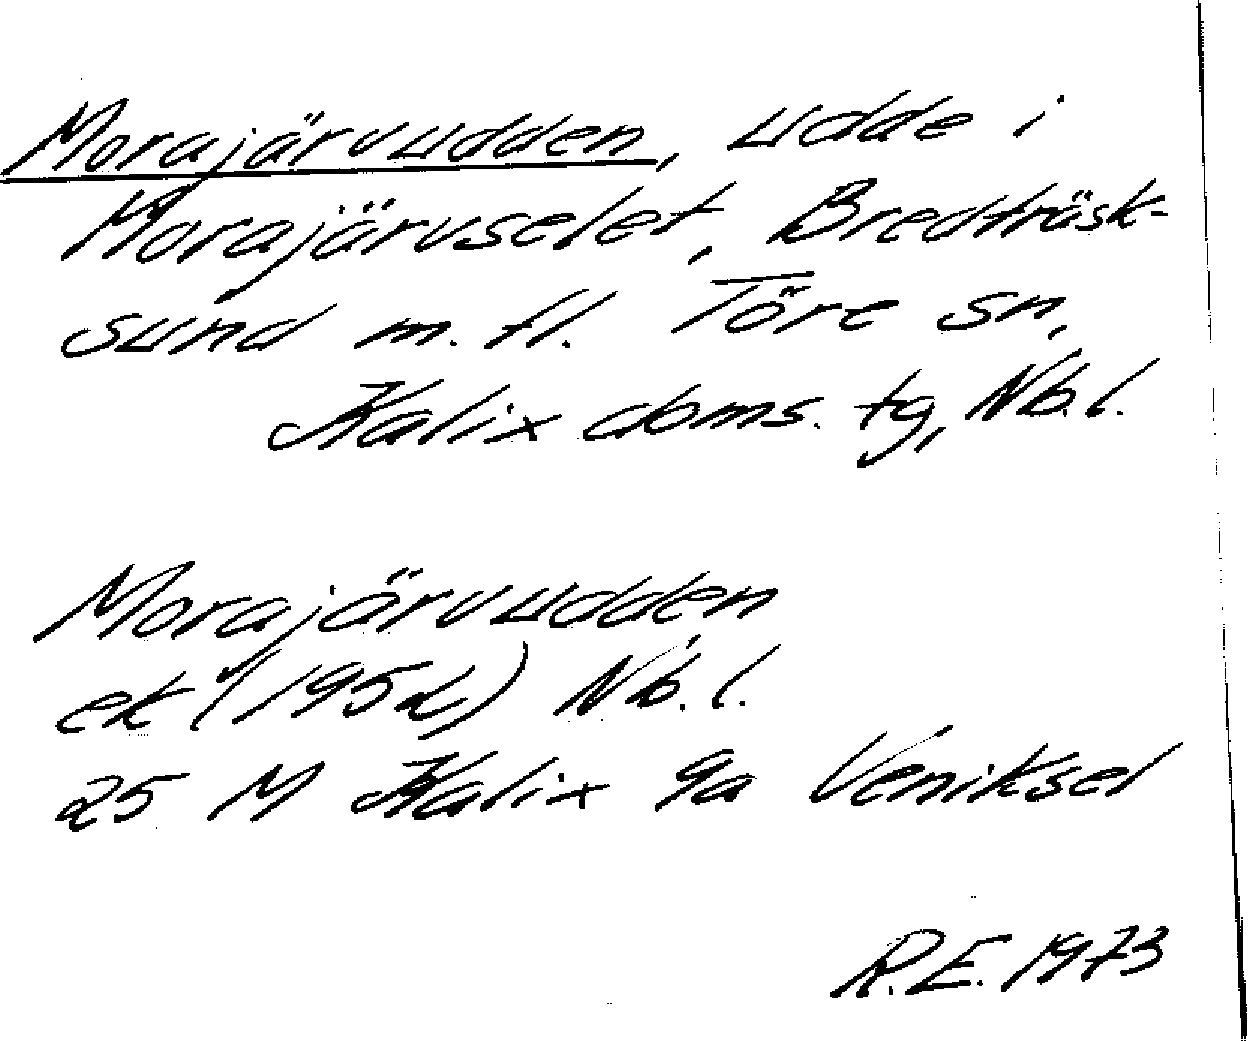 Morajärvudden, udde i
Morajärvselet, Bredträsk-
sund m.fl. Töre sn,
Kalix doms. tg, Nb.l.
Morajärvudden
ek (1952) Nb.l.
25 M Kalix 9a Veniksel
R.E. 1973